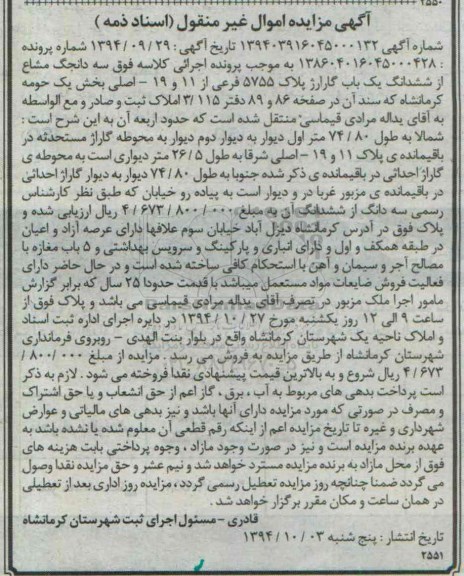 ۲۵۵۰
آگهی مزایده اموال غیر منقول (اسناد ذمه)
شماره آگهی ۱۳۹۴۰۳۹۱۶۰۴۵۰۰۰۱۳۲ تاریخ آگهی: ۱۳۹۴/۰۹/۲۹ شماره پرونده
: ۱۳۸۶۰۴۰۱۶۰۴۵۰۰۰۴۲۸ به موجب پرونده اجرائی کلاسه فوق سه دانگ مشاع
از ششدانگ یک باب گاراژ پلاک ۵۷۵۵ فرعی از ۱۱ و ۱۹ – اصلی بخش یک حومه
کرمانشاه که سند آن در صفحه ۸۶ و ۸۹ دفتر ۳/۱۱۵ املاک ثبت و صادر و مع الواسطه
به آقای یداله مرادی قیماسی منتقل شده است که حدود اربعه آن به این شرح است :
شمالا به طول ۷۴/۸۰ متر اول دیوار به دیوار دوم دیوار به محوطه گاراژ مستحدثه در
باقیمانده ی پلاک ۱۱ و ۱۹ – اصلی شرقا به طول ۲۶/۵ متر دیواری است به محوطه ی
گاراژ احداثی در باقیمانده ی ذکر شده جنوبا به طول ۷۴/۸۰ دیوار به دیوار گاراژ احداثی
در باقیمانده ی مزبور غربا در و دیوار است به پیاده رو خیابان که طبق نظر کارشناس
رسمی سه دانگ از ششدانگ آن به مبلغ ۴/۶۷۳/۸۰۰/۰۰۰ ریال ارزیابی شده و
پلاک فوق در آدرس کرمانشاه دیزل آباد خیابان سوم علافها دارای عرصه آزاد و اعیان
در طبقه همکف و اول و دارای انباری و پارکینگ و سرویس بهداشتی و ۵ باب مغازه با
مصالح آجر و سیمان و آهن با استحکام کافی ساخته شده است و در حال حاضر دارای
فعالیت فروش ضایعات مواد مستعمل میباشد با قدمت حدودا ۲۵ سال که برابر گزارش
مامور اجرا ملک مزبور در تصرف آقای یداله مرادی قیماسی می باشد و پلاک فوق از
ساعت ۹ الی ۱۲ روز یکشنبه مورخ ۱۳۹۴/۱۰/۲۷ در دایره اجرای اداره ثبت اسناد
و املاک ناحیه یک شهرستان کرمانشاه واقع در بلوار بنت الهدی – روبروی فرمانداری
شهرستان کرمانشاه از طریق مزایده به فروش می رسد . مزایده از مبلغ ۸۰۰/۰۰۰/
۴/۶۷۳ ریال شروع و به بالاترین قیمت پیشنهادی نقدا فروخته می شود . لازم به ذکر
است پرداخت بدهی های مربوط به آب ، برق ، گاز اعم از حق انشعاب و یا حق اشتراک
و مصرف در صورتی که مورد مزایده دارای آنها باشد و نیز بدهی های مالیاتی و عوارض
شهرداری و غیره تا تاریخ مزایده اعم از اینکه رقم قطعی آن معلوم شده یا نشده باشد به
عهده برنده مزایده است و نیز در صورت وجود مازاد ، وجوه پرداختی بابت هزینه های
فوق از محل مازاد به برنده مزایده مسترد خواهد شد و نیم عشر و حق مزایده نقدا وصول
می گردد ضمنا چنانچه روز مزایده تعطیل رسمی گردد ، مزایده روز اداری بعد از تعطیلی
در همان ساعت و مکان مقرر برگزار خواهد شد .
قادری – مسئول اجرای ثبت شهرستان کرمانشاه
تاریخ انتشار : پنج شنبه ۱۳۹۴/۱۰/۰۳
۲۵۵۱